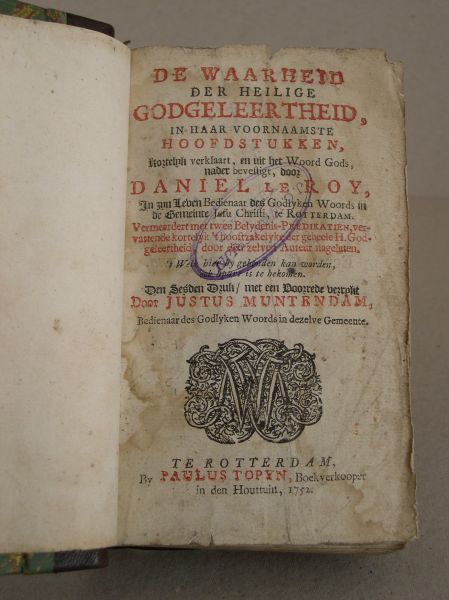 DE WAARHEID
DER HEILIGE
GODGELEERTHEID,
IN HAAR VOORNAAMSTE
HOOFDSTUKKEN,
Kortelyk verklaart, en uit het Woord Gods,
nader bevestigt, door
DANIEL LE ROY,
In zyn Leven Bedienaar des Godlyken Woords in
de Gemeinte Jesu Christi, te ROTTERDAM.
Vermeerdert met twee Belydenis-PREDIKATIEN, ver-
vattende kortelyk 't hooftzakelyke der geheele H. God-
geleertheid, door den zelven Auteur nagelaten.
't Welk hier by gebonden kan worden,
ook apart is te bekomen.
Den Sesden Druk, met een Voorrede verrykt
Door JUSTUS MUNTENDAM,
Bedienaar des Godlyken Woords in dezelve Gemeente.
TE ROTTERDAM,
By PAULUS TOPYN, Boekverkooper
in den Houttuin, 1752.